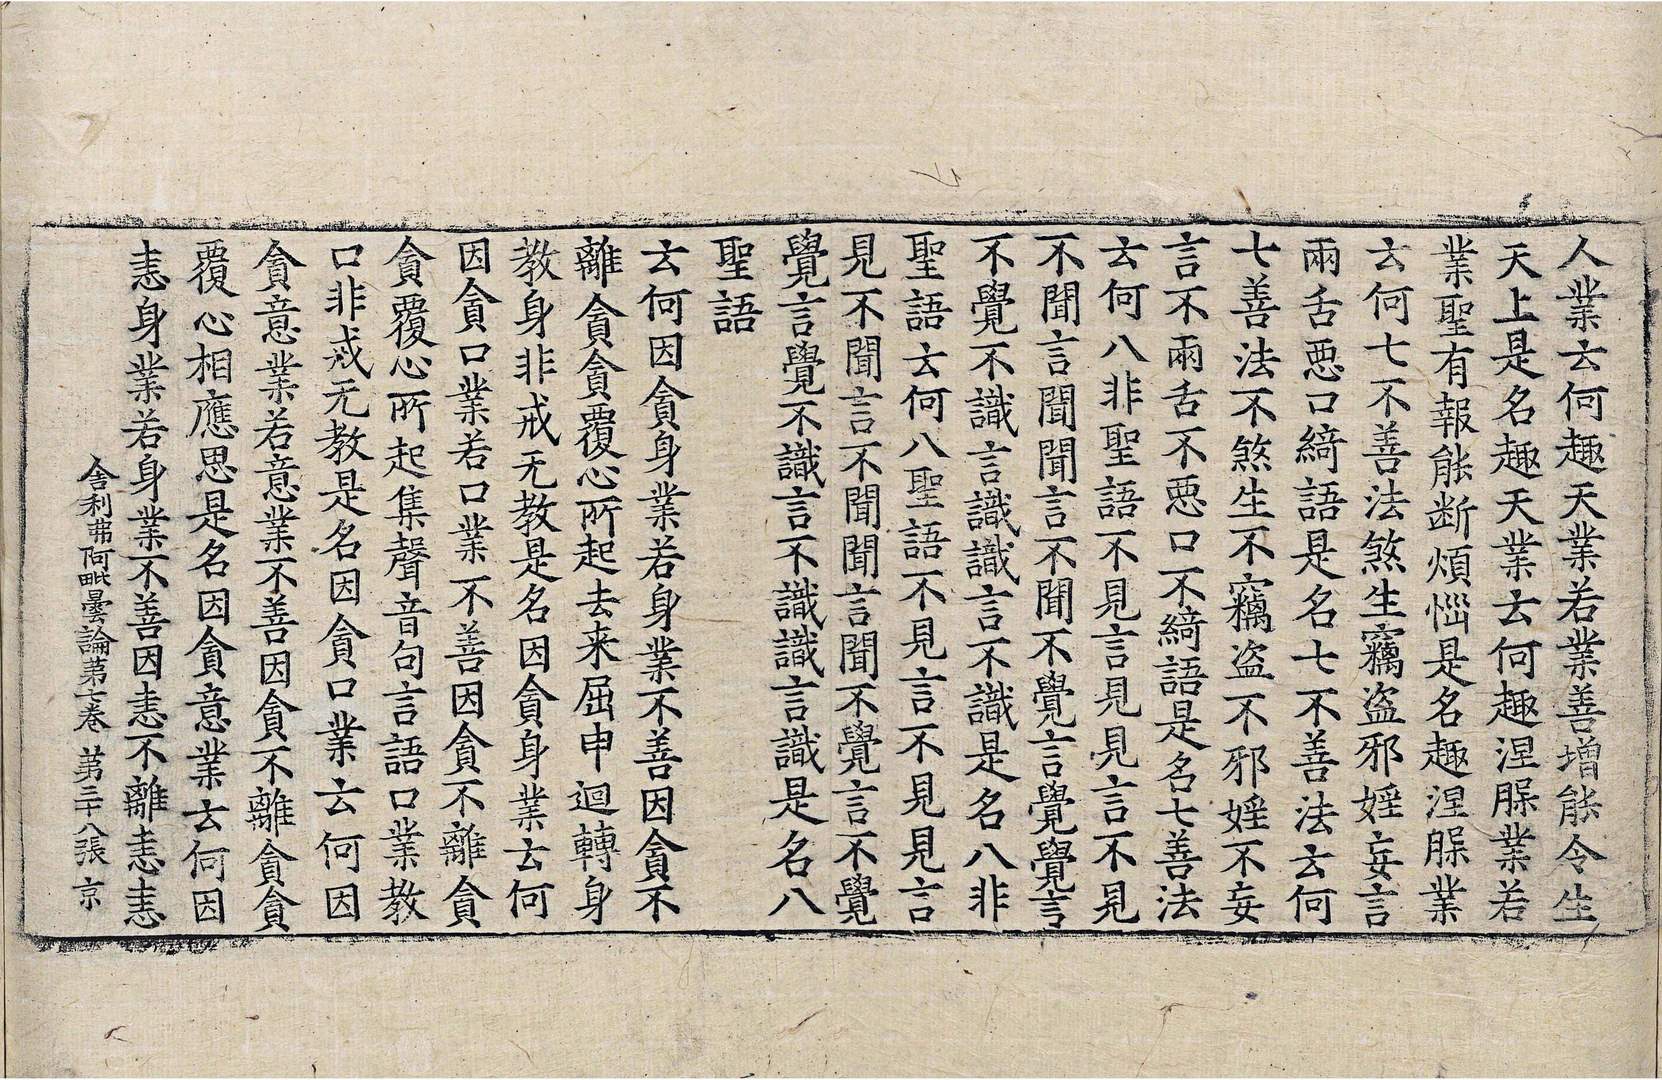 人業云何趣天業若業善增能令生
天上是名趣天業云何趣涅槃業若
業聖有報能断煩惱是名趣涅槃業
云何七不善法煞生竊盗邪婬妄言
兩舌惡口綺語是名七不善法云何
七善法不煞生不竊盗不邪婬不妄
言不兩舌不惡口不綺語是名七善法
云何八非聖語不見言見見言不見
不聞言聞聞言不聞不覺言覺覺言
不覺不識言識識言不識是名八非
聖語云何八聖語不見言不見見言
見不聞言不聞聞言聞不覺言不覺
覺言覺不識言不識識言識是名八
聖語
云何因貪身業若身業不善因貪不
離貪貪覆心所起去来屈申迴轉身
教身非戒无教是名因貪身業云何
因貪口業若口業不善因貪不離貪
貪覆心所起集聲音句言語口業教
口非戒无教是名因貪口業云何因
貪意業若意業不善因貪不離貪貪
覆心相應思是名因貪意業云何因
恚身業若身業不善因恚不離恚恚
舍利弗阿毗曇論苐七卷 苐三十八張 京